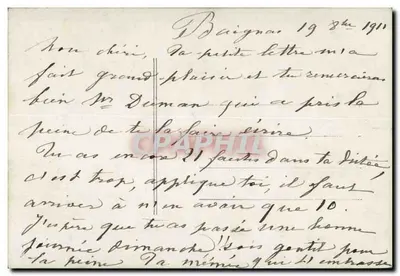 Baignac 19 8bre 1911
Mon chéri, Ta petite lettre m'a
fait grand plaisir et tu remercieras
bien Mr Duman qui a pris la
peine de te la faire écrire.
Tu as encore 21 fautes dans ta dictée
c'est trop, applique toi, il faut
arriver à n'en avoir que 10.
J'espère que tu as passé une bonne
journée dimanche! Sois gentil pour
la peine Ta mémée qui t'embrasse
CPAPHIL